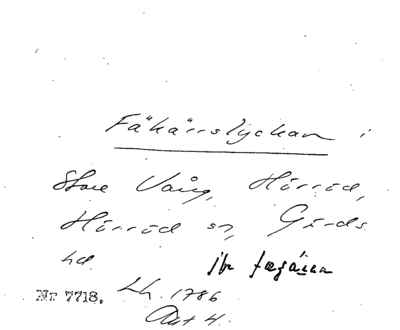 Fähärslyckan i
Store Vång, Hörröd,
Hörröd sn, Gärds
hd.
Nr 7718. Lh. 1786
Akt 4.